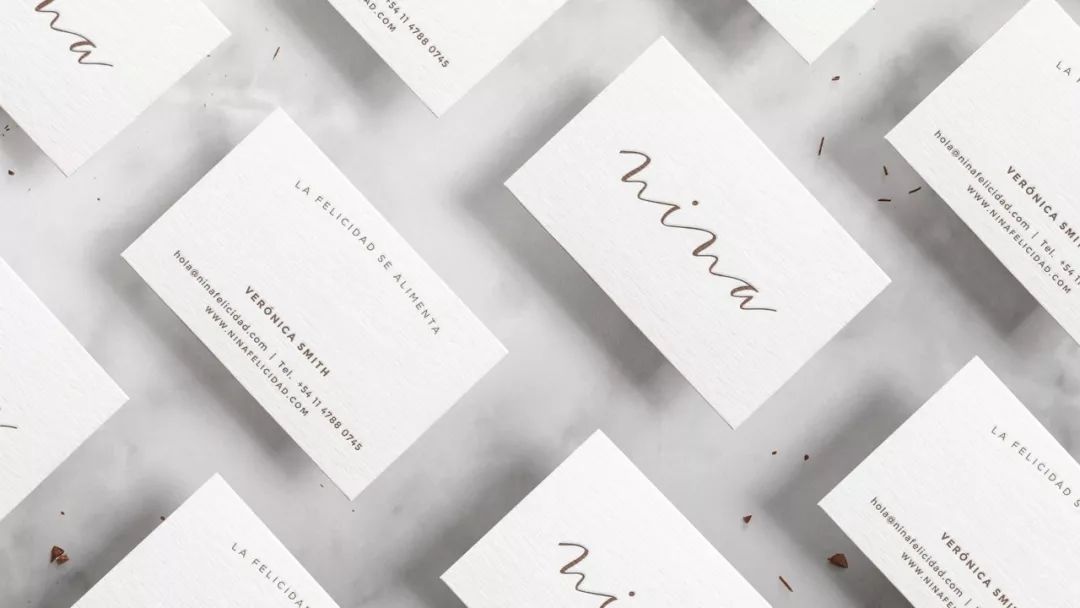 na
+54 11 4788 0745
.COM
LA FELICIDAD SE ALIMENTA
VERÓNICA SMITH
hola@ninafelicidad.com | Tel. +54 11 4788 0745
WWW.NINAFELICIDAD.COM
nina
LA F
VERÓNICA SMIT
hola@ninafelicidad.com | Tel. +54
WWW.NINAFELICIDAD.COM
LA FELICIDAD
nina
LA FELICIDAD S
VERÓNICA SMI
hola@ninafelicidad.com | Te
WWW.NINAFELICIDAD